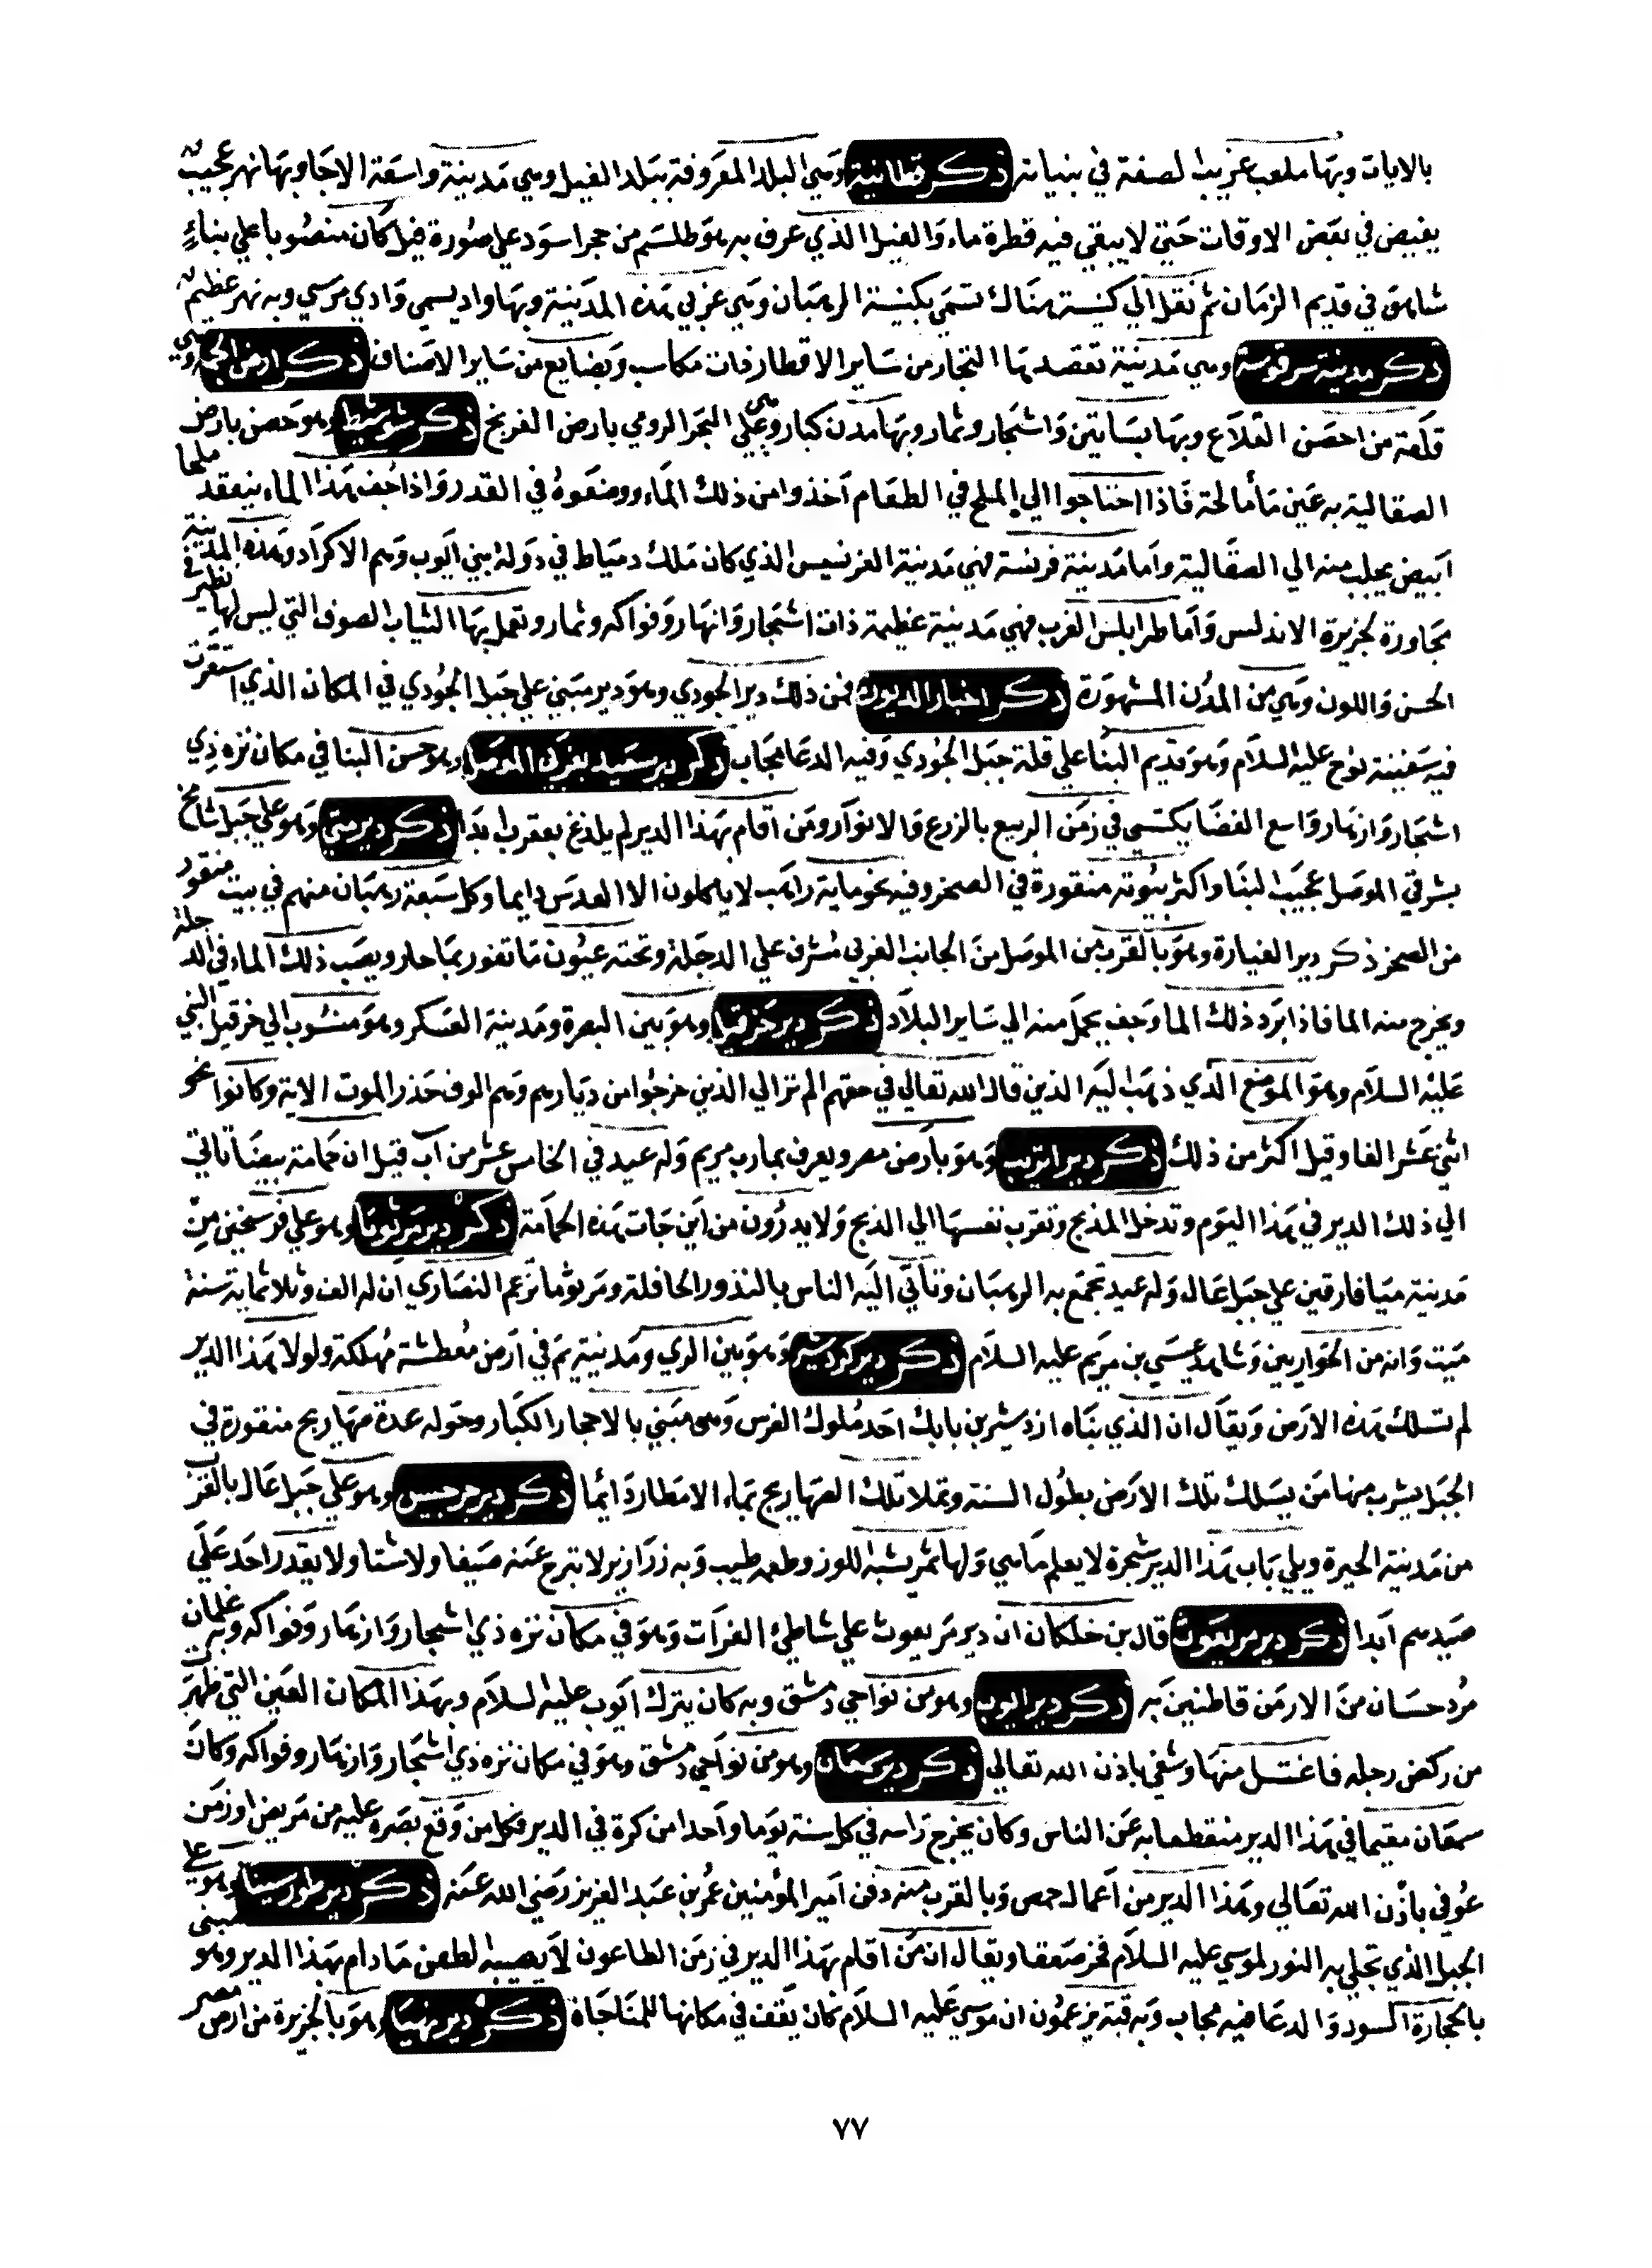 بالايات وبها ملعب غريب الصفة في بنيانه ذكر قطانية وهي البلد المعروفة ببلد الفيل وهي مدينة واسعة الارجا وبها نهر عجيب
يفيض في بعض الاوقات حتي لا يبقي فيه قطرة ماء والفيل الذي عرف به هو طلسم من حجر اسود علي صورة فيل كان منصوبا علي بناء
شاهق في قديم الزمان ثم نقل الي كنيسة هناك تسمي بكنيسة الرهبان وهي غربي هذه المدينة وبها واد يسمي وادي موسي وبه نهر عظيم
ذكر مدينة سرقوسة وهي مدينة تقصدها التجار من ساير الاقطار ذات مكاسب وبضايع من ساير الاصناف ذكر ارض وهي
قلعة من احصن القلاع وبها بساتين واشجار وثمار وبها مدن كبار وهي علي البحر الرومي بارض الفرنج ذكر وهو حصن بارض
الصقالية به عين ماء مالحة فاذا احتاجوا الي الملح في الطعام اخذوا من ذلك الماء ووضعوه في القدر واذا جف هذا الماء ينعقد ملحا
ابيض يجلب منه الي الصقالية واما مدينة فرنسة فهي مدينة الفرنسيس الذي كان ملك دمياط في دولة بني ايوب وهم الاكراد وهذه المدينة
مجاورة لجزيرة الاندلس واما طرابلس الغرب فهي مدينة عظيمة ذات اشجار وانهار وفواكه وثمار وتعمل بها الثياب الصوف التي ليس لها نظير في
الحسن واللون وهي من المدن المشهورة ذكر اخبار الديورة فمن ذلك دير الجودي وهو دير مبني علي جبل الجودي في المكان الذي استقرت
فيه سفينة نوح عليه السلام وهو قديم البنا علي قلة جبل الجودي وفيه الدعا مجاب ذكر دير سعيد بغربي الموصل وهو حسن البنا في مكان نزه ذي
اشجار وازهار واسع الفضا يكتسي في زمن الربيع بالزرع والانوار ومن اقام بهذا الدير لم يلدغ بعقرب ابدا ذكر دير متي وهو علي جبل شامخ
بشرقي الموصل عجيب البنا واكثر بيوته منقورة في الصخر وفيه نحو ماية راهب لا ياكلون الا العدس دايما وكل سبعة رهبان منهم في بيت منقور
من الصخر ذكر دير القيارة وهو بالقرب من الموصل من الجانب الغربي مشرف علي الدجلة وتحته عيون ما تفور بما حار ويصب ذلك الماء في الدجلة
ويخرج منه الما فاذا برد ذلك الما وجف يحمل منه الي ساير البلاد ذكر دير حزقيل وهو بين البصرة ومدينة العسكر وهو منسوب الي حزقيل النبي
عليه السلام وهو الموضع الذي ذهب اليه الذين قال الله تعالي في حقهم الم تر الي الذين خرجوا من ديارهم وهم الوف حذر الموت الاية وكانوا نحو
اثني عشر الفا وقيل اكثر من ذلك ذكر دير اتريب وهو بارض مصر ويعرف بمارت مريم وله عيد في الخامس عشر من آب قيل ان حمامة بيضا تاتي
الي ذلك الدير في هذا اليوم وتدخل المذبح وتقرب نفسها الي الذبح ولا يدرون من اين جات هذه الحمامة ذكر دير مرتوما وهو علي فرسخين من
مدينة ميافارقين علي جبل عال وله عيد تجمع به الرهبان وتاتي اليه الناس بالنذور الحافلة ومرتوما تزعم النصاري ان له الف وثلاثماية سنة
ميت وانه من الحواريين وشاهد عيسي بن مريم عليه السلام ذكر دير كردشير وهو بين الري ومدينة قم في ارض معطشة مهلكة ولولا هذا الدير
لم تسلك هذه الارض ويقال ان الذي بناه ازدشير بن بابك احد ملوك الفرس وهي مبني بالاحجار الكبار وحوله عدة صهاريج منقورة في
الجبل يشرب منها من يسلك تلك الارض بطول السنة وتملا تلك الصهاريج بماء الامطار دايما ذكر دير جرجيس وهو علي جبل عال بالقرب
من مدينة الحيرة ويلي باب هذا الدير شجرة لا يعلم ما هي ولها ثمر يشبه اللوز وطعمه طيب وبه زرازير لا تبرح عنه صيفا ولا شتا ولا يقدر احد علي
صيدهم ابدا ذكر دير مريعوث قال بن خلكان ان دير مريعوث علي شاطئ الفرات وهو في مكان نزه ذي اشجار وازهار وفواكه وبه غلمان
مرد حسان من الارمن قاطنين به ذكر دير ايوب وهو من نواحي دمشق وبه كان ينزل ايوب عليه السلام وبهذا المكان العين التي ظهرت
من ركض رجله فاغتسل منها وشفي باذن الله تعالي ذكر دير سمعان وهو من نواحي دمشق وهو في مكان نزه ذي اشجار وازهار وفواكه وكان
سمعان مقيما في هذا الدير منقطعا به عن الناس وكان يخرج راسه في كل سنة يوما واحدا من كرة في الدير فكل من وقع بصره عليه من مريض او زمن
عوفي باذن الله تعالي وهذا الدير من اعمال حمص وبالقرب منه دفن امير المؤمنين عمر بن عبد العزيز رضي الله عنه ذكر دير طور سينا وهو علي
الجبل الذي تجلي به النور لموسي عليه السلام فخر صعقا ويقال ان من اقام بهذا الدير في زمن الطاعون لا يصيبه الطعن ما دام بهذا الدير وهو مبني
بالحجارة السود والدعا فيه مجاب وبه قبة يزعمون ان موسي عليه السلام كان يقف في مكانها للمناجاة ذكر دير نهيا وهو بالجزيرة من ارض مصر
٧٧